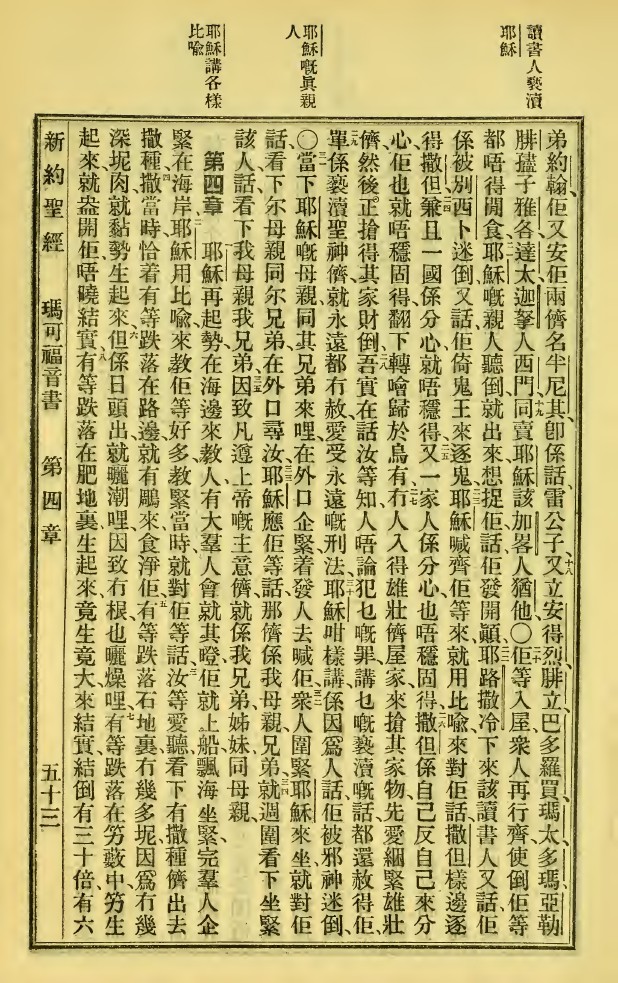 讀書人褻瀆
耶穌
耶穌嘅眞親
人
耶穌講各樣
比喩
弟約翰佢又安佢兩儕名半尼其卽係話雷公子十八又立安得烈腓立巴多羅買瑪太多瑪亞勒
腓孻子雅各達太迦拏人西門十九同賣耶穌該加畧人猶他〇二十佢等入屋衆人再行齊使倒佢等
都唔得閒食二一耶穌嘅親人聽倒就出來想捉佢話佢發開顚二二耶路撒冷下來該讀書人又話佢
係被別西卜迷倒又話佢倚鬼王來逐鬼二三耶穌喊齊佢等來就用比喩來對佢話撒但樣邊逐
得撒但二四兼且一國係分心就唔穩得二五又一家人係分心也唔穩固得二六撒但係自己反自己來分
心佢也就唔穩固得翻下轉噲歸於烏有二七冇人入得雄壯儕屋家來搶其家物先愛綑緊雄壯
儕然後正搶得其家財倒二八吾實在話汝等知人唔論犯乜嘅罪講乜嘅褻瀆嘅話都還赦得佢
二九單係褻瀆聖神儕就永遠都冇赦愛受永遠嘅刑法三十耶穌咁樣講係因爲人話佢被邪神迷倒
〇三一當下耶穌嘅母親同其兄弟來哩在外口企緊着發人去喊佢三二衆人圍緊耶穌來坐就對佢
話看下尔母親同尔兄弟在外口尋汝三三耶穌應佢等話那儕係我母親兄弟三四就週圍看下坐緊
該人話看下我母親我兄弟三五因致凡遵上帝嘅主意儕就係我兄弟姊妹同母親
第四章　一耶穌再起勢在海邊來教人有大羣人會就其嶝佢就上船飄海坐緊完羣人企
緊在海岸二耶穌用比喩來教佢等好多教緊當時就對佢等話三汝等愛聽看下有撒種儕出去
撒種四撒當時恰着有等跌落在路邊就有鵰來食淨佢五有等跌落石地裏冇幾多坭因爲冇幾
深坭肉就黏勢生起來六但係日頭出就曬潮哩因致冇根也曬燥哩七有等跌落在竻藪中竻生
起來就盎開佢唔曉結實八有等跌落在肥地裏生起來竟生竟大來結實結倒有三十倍有六
新約聖經　瑪可福音書　第四章　五十三